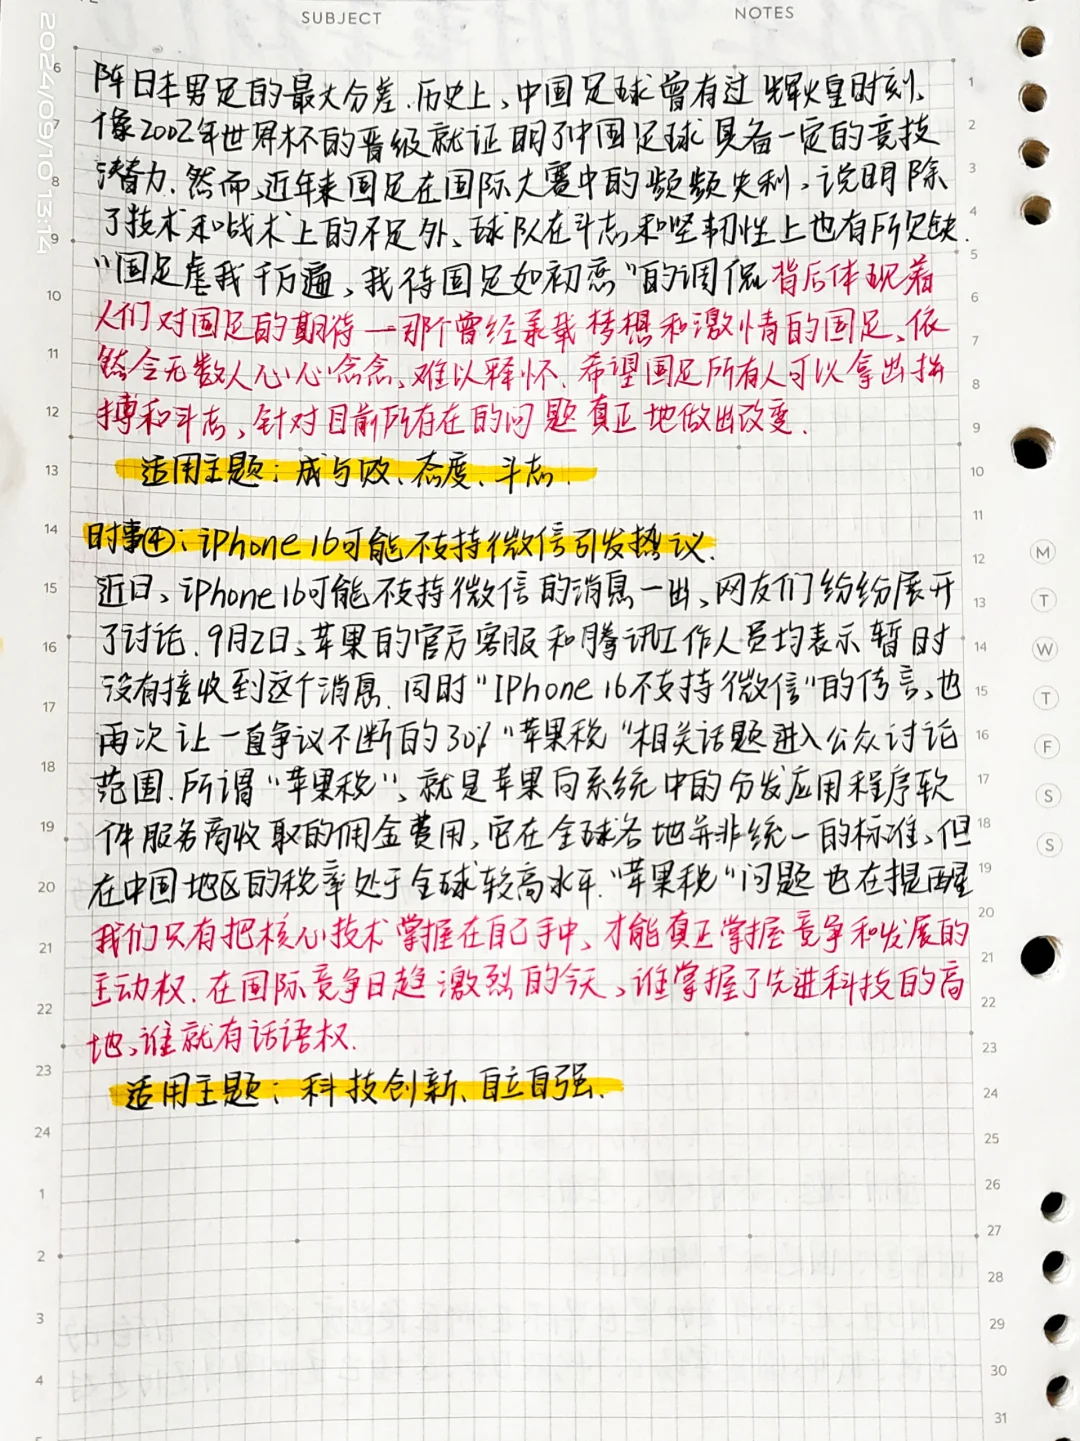 SUBJECT
NOTES
2024/09/10 13:14
阵日本男足的最大分差.历史上、中国足球曾有过辉煌时刻、
像2002年世界杯的晋级就证明了中国足球具备一定的竞技
潜力.然而、近年来国足在国际大赛中的频频失利、说明除
了技术和战术上的不足外、球队在斗志和坚韧性上也有所欠缺.
"国足虐我千万遍、我待国足如初恋"的调侃背后体现着
人们对国足的期待—那个曾经承载梦想和激情的国足、依
然令无数人心心念念、难以释怀.希望国足所有人可以拿出拼
搏和斗志、针对目前所存在的问题真正地做出改变.
适用主题:成与败、态度、斗志.
时事④:iPhone16可能不支持微信引发热议.
近日、iPhone16可能不支持微信的消息一出、网友们纷纷展开
了讨论.9月2日、苹果的官方客服和腾讯工作人员均表示暂时
没有接收到这个消息.同时"IPhone16不支持微信"的传言、也
再次让一直争议不断的30%"苹果税"相关话题进入公众讨论
范围.所谓"苹果税"、就是苹果向系统中的分发应用程序软
件服务商收取的佣金费用、它在全球各地并非统一的标准、但
在中国地区的税率处于全球较高水平."苹果税"问题也在提醒
我们只有把核心技术掌握在自己手中、才能真正掌握竞争和发展的
主动权.在国际竞争日趋激烈的今天、谁掌握了先进科技的高
地、谁就有话语权.
适用主题:科技创新、自立自强.
6
7
8
9
10
11
12
13
14
15
16
17
18
19
20
21
22
23
24
1
2
3
4
1
2
3
4
5
6
7
8
9
10
11
12
13
14
15
16
17
18
19
20
21
22
23
24
25
26
27
28
29
30
31
M
T
W
T
F
S
S